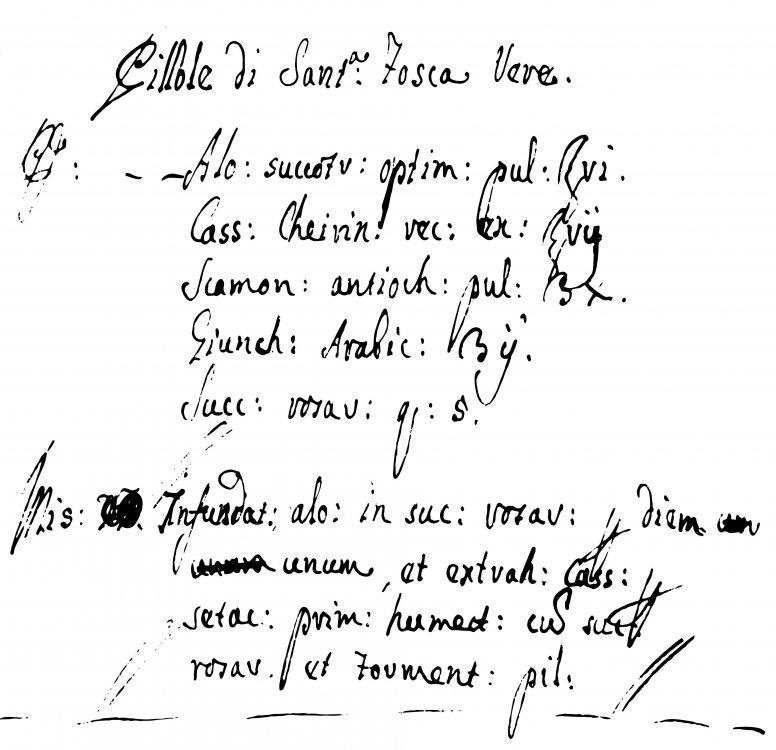 Pillole di Sant.ª Fosca Vere.
℞: — — Alo: succotr: optim: pul: ℥vi.
Cass: Cheirin: rec: ex: ℥vij
Scamon: antioch: pul: ℥x.
Giunch: Arabic: ℥ij.
Succ: rosar: q: s.
Mis: Infundat: alo: in suc: rosar: p diem
unum, et extrah: Cass:
setac: prim: humect: cū succ
rosar. et forment: pil: